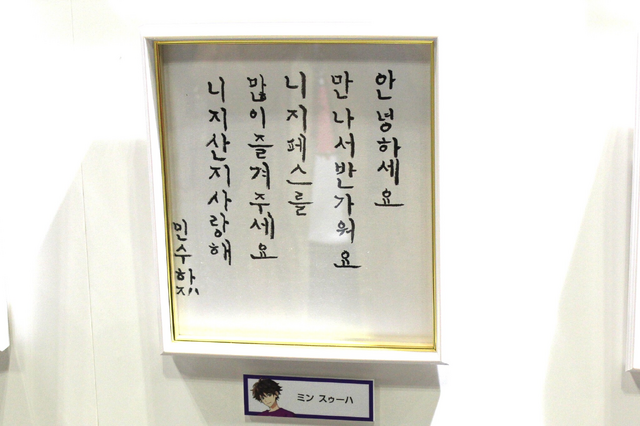 안녕하세요
만나서반가워요
니지페스를
많이즐겨주세요
니지산지사랑해
민수하
ミン スゥーハ